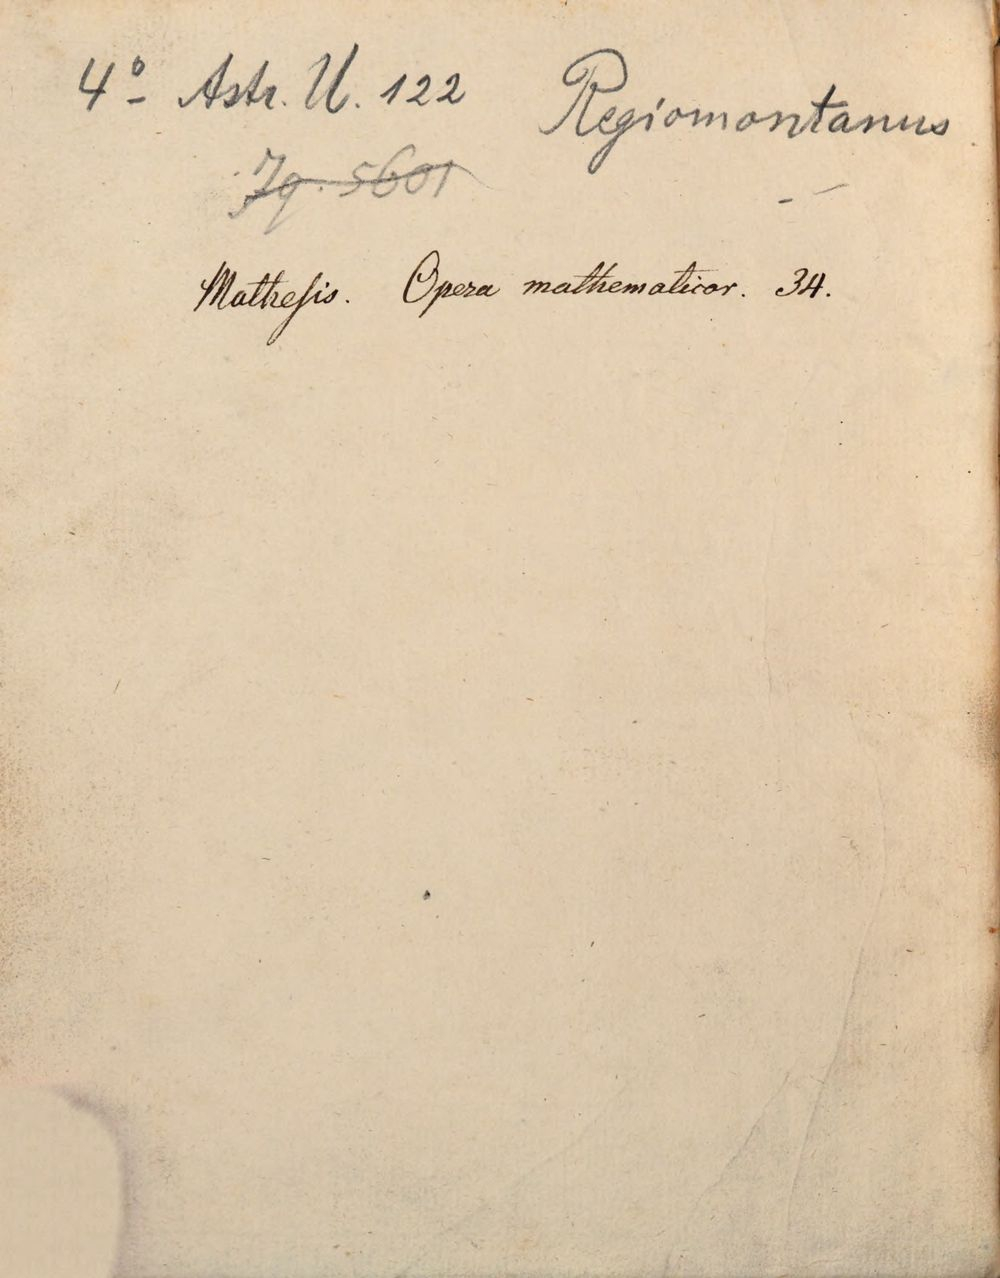 4º Astr. U. 122 Regiomontanus
5601
Mathesis. Opera mathematicor. 34.